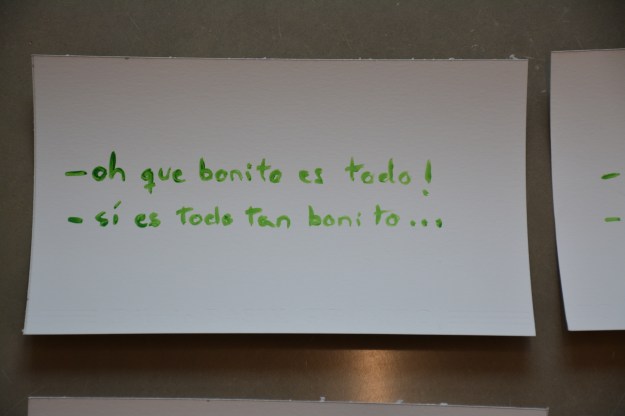 -oh que bonito es todo!
- sí es todo tan bonito...